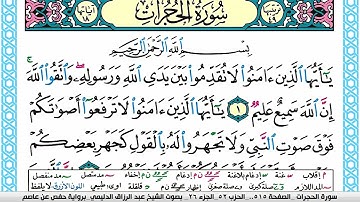 سُورَةُ الحُجُرَاتِ
بِسْمِ اللَّهِ الرَّحْمَنِ الرَّحِيمِ
يَا أَيُّهَا الَّذِينَ ءَامَنُوا لَا تُقَدِّمُوا بَيْنَ يَدَيِ اللَّهِ وَرَسُولِهِ ۖ وَاتَّقُوا اللَّهَ
إِنَّ اللَّهَ سَمِيعٌ عَلِيمٌ ١ يَا أَيُّهَا الَّذِينَ ءَامَنُوا لَا تَرْفَعُوا أَصْوَاتَكُمْ
فَوْقَ صَوْتِ النَّبِيِّ وَلَا تَجْهَرُوا لَهُ بِالْقَوْلِ كَجَهْرِ بَعْضِكُمْ
سورة الحجرات الصفحة ٥١٥ .. الحزب ٥٢ الجزء ٢٦ بصوت الشيخ عبد الرزاق الدليمي برواية حفص عن عاصم